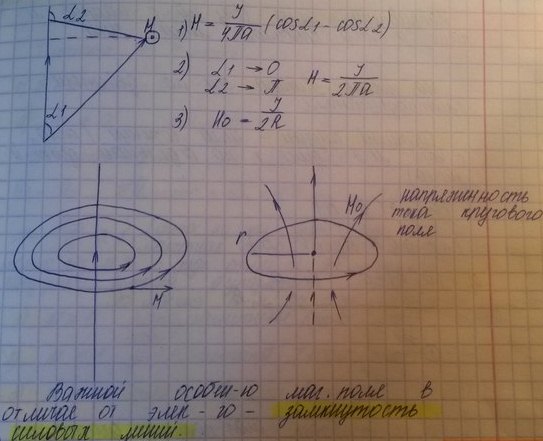 α2
H
α1
1) H = J / 4πa (cosα1 - cosα2)
2) α1 → 0
α2 → π
H = J / 2πa
3) H0 = J / 2R
H
r
H0
напряженность
тока кругового
поля
Важной особен-ю маг. поля в
отличае от элек-го - замкнутость
силовых линий.